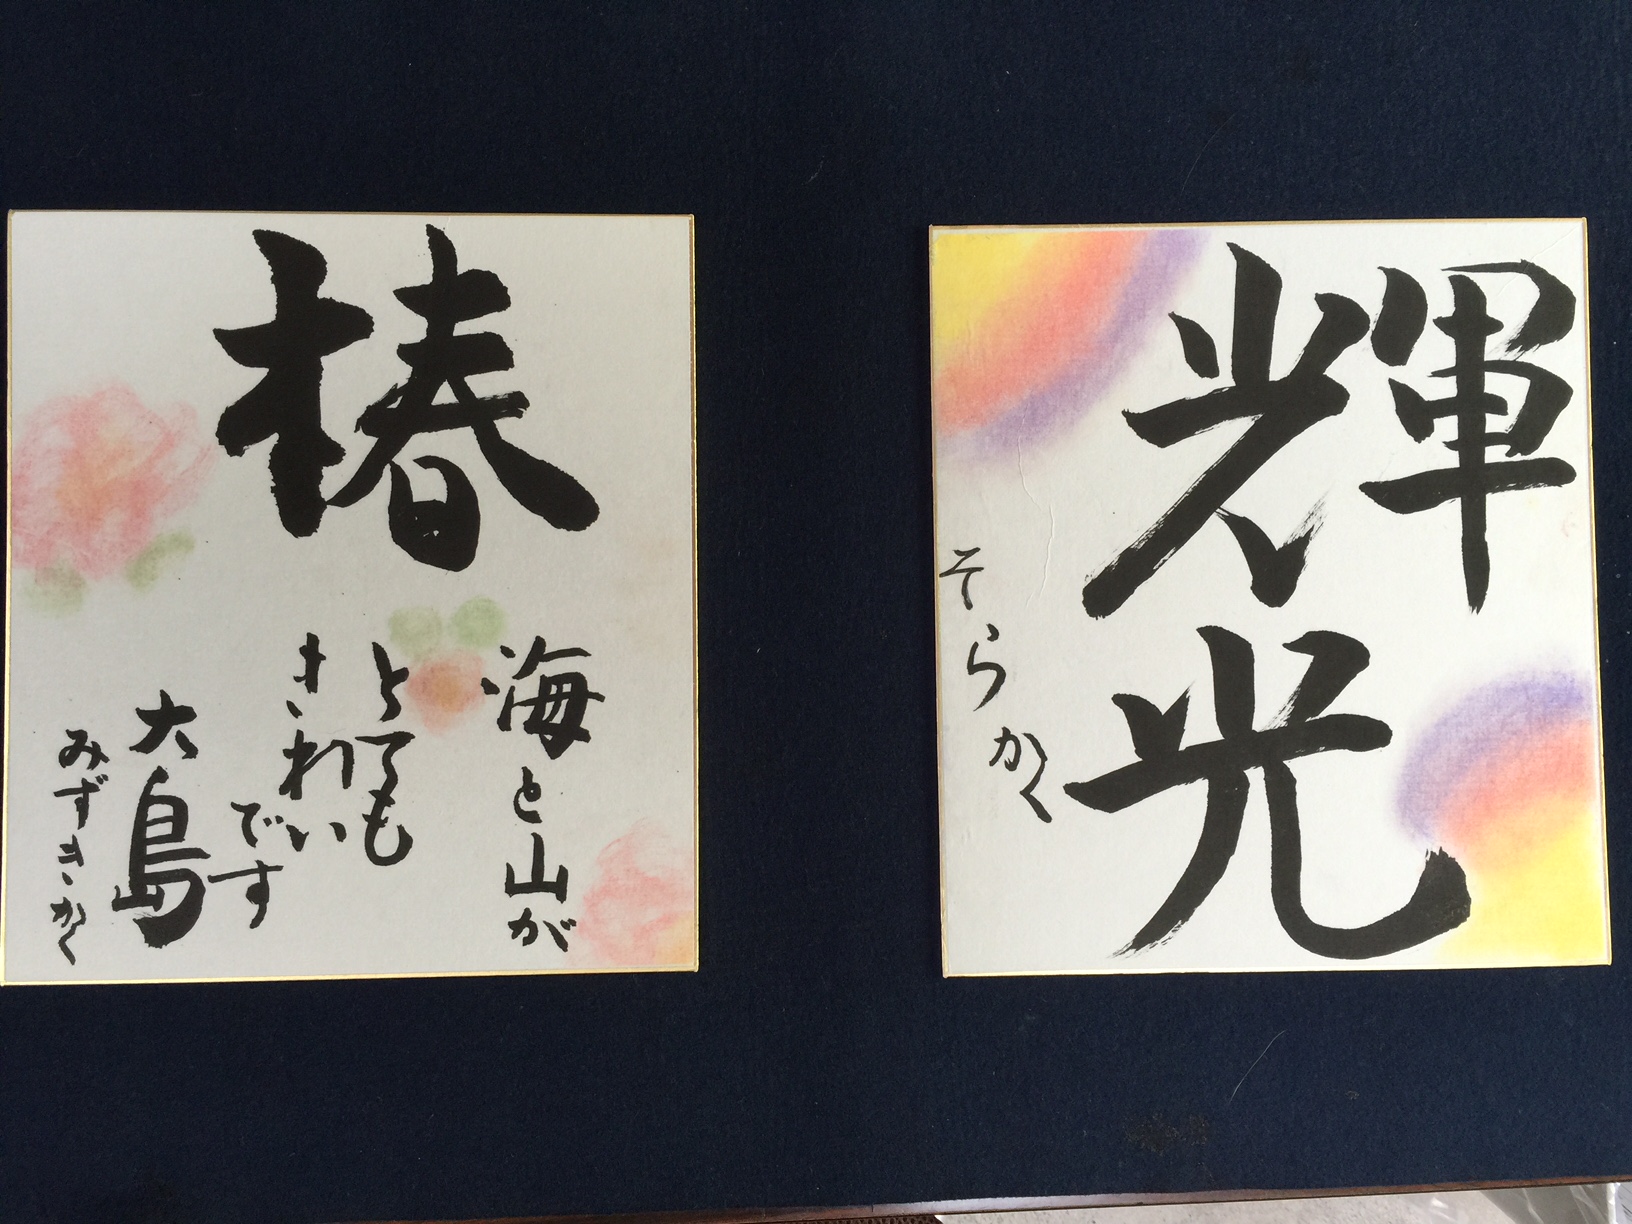 椿
海と山が
とても
きれい
です
大島
みずきかく
輝光
そらかく